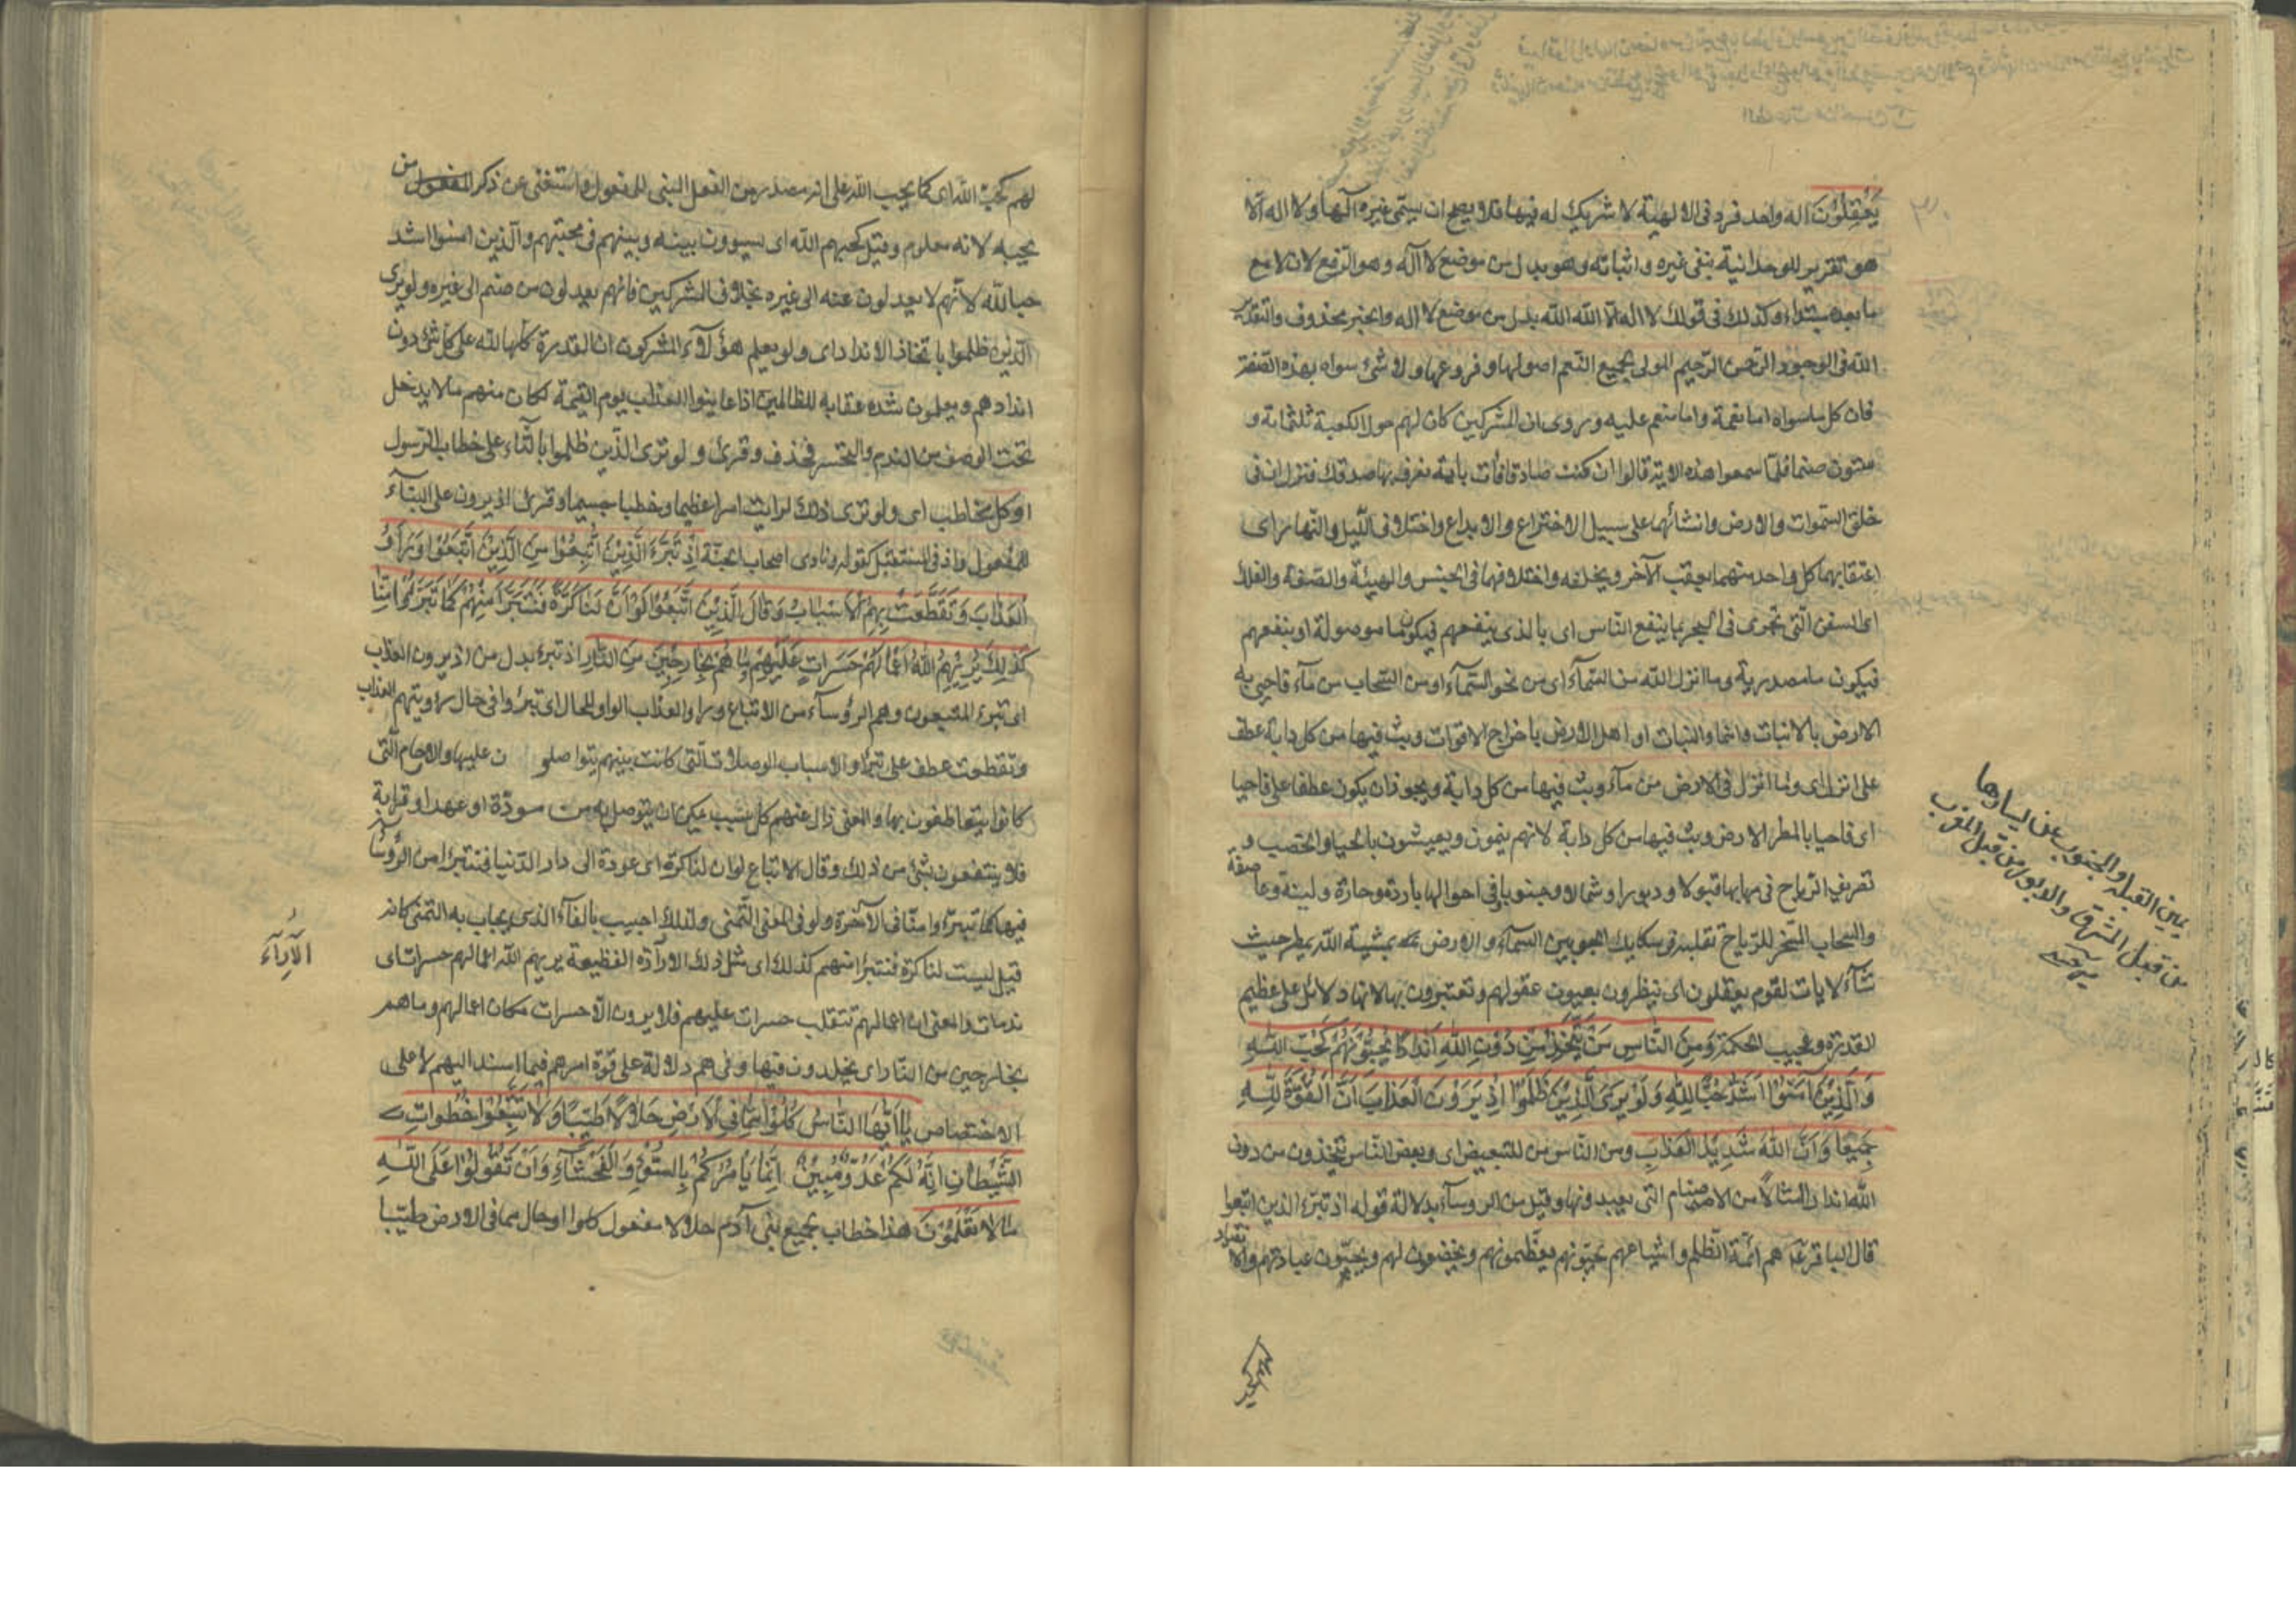 يَعْقِلُونَ اله واحد فرد فى الالهية لا شريك له فيها فلا يصح ان يسمّى غيره آلها ولا اله الّا
هو تقرير للوحدانية بنفى غيره واثباته وهو بدل من موضع لا آله وهو الرفع لان لا مع
ما بعده مبتداء وكذلك فى قولك لا اله الّا الله الله بدل من موضع لا اله والخبر محذوف والتقدير
الله فى الوجود الرّحمن الرّحيم المولى لجميع النّعم اصولها وفروعها ولا شئ سواه بهذه الصّفة
فان كل ما سواه اما نعمة واما منعم عليه وروى ان المشركين كان لهم حول الكعبة ثلثمائة و
ستون صنما فلمّا سمعوا هذه الاية قالوا ان كنت صادقا فأت بأية نعرف بها صدقك فنزل ان فى
خلق السّموات والارض وانشائهما على سبيل الاختراع والابداع واختلاف اللّيل والنّهار اى
اعتقابهما كل واحد منهما يعقب الآخر ويخلفه واختلافهما فى الجنس والهيئة والصّفة والفلك
اى السفن الّتى تجرى فى البحر بما ينفع النّاس اى بالذى ينفعهم فيكون ما موصولة او بنفعهم
فيكون ما مصدرية وما انزل الله من السّمآء اى من نحو السّمآء او من السّحاب من مآء فاحيى به
الارض بالانبات وانماء النبات او اهل الارض باخراج الاقوات وبث فيها من كل دابة عطف
على انزل اى وما انزل فى الارض من مآء وبث فيها من كل دابة ويجوز ان يكون عطفا على فاحيا
اى فاحيا بالمطر الارض وبث فيها من كل دابة لانهم ينمون ويعيشون بالحيا والخصب و
تصريف الرّياح فى مهابها قبولا ودبورا وشمالا وجنوبا وفى احوالها باردة وحارة ولينة وعاصفة
والسّحاب المسخّر للرّياح تقلبه فى سكايك الجو بين السّمآء والارض بمشية الله يمطر حيث
شآء لايات لقوم يعقلون اى ينظرون بعيون عقولهم وتعتبرون بها لانها دلائل على عظيم
القدرة وعجيب الحكمة وَمِنَ النَّاسِ مَنْ يَتَّخِذُ مِنْ دُونِ اللهِ اَنْدَادًا يُحِبُّونَهُمْ كَحُبِّ اللهِ
وَالَّذِينَ آمَنُوا اَشَدُّ حُبًّا لِلّهِ وَلَوْ يَرَى الَّذِينَ ظَلَمُوا اِذْ يَرَوْنَ الْعَذَابَ اَنَّ الْقُوَّةَ لِلّهِ
جَمِيعًا وَاَنَّ اللهَ شَدِيدُ الْعَذَابِ ومن النّاس من للتبعيض اى وبعض النّاس يتّخذون من دون
الله اندادا امثالاً من الاصنام التى يعبدونها وقيل من الرؤسآء بدلالة قوله اذ تبرّء الذين اتبعوا
قال الباقر عه هم ائمّة الظّلم واشياعهم يحبّونهم يعظّمونهم ويخضعون لهم ويحبّون عبادتهم والانقياد
يمين القبلة والجنوب عن يسارها
من قبل المشرق والدبور من قبل المغرب
لهم كحبّ الله اى كما يحب الله على انه مصدر من الفعل المبنى للمفعول واستغنى عن ذكر من
يحبه لانه معلوم وقيل كحبهم الله اى يسوون بينه وبينهم فى محبتهم والّذين امنوا اشد
حبا لله لانّهم لا يعدلون عنه الى غيره بخلاف المشركين فانهم يعدلون من صنم الى غيره ولو يرى
الّذين ظلموا باتخاذ الانداد اى ولو يعلم هؤلآء المشركون ان القدرة كلها لله على كل شئ دون
اندادهم ويعلمون شدة عقابه للظالمين اذا عاينوا العذاب يوم القيمة لكان منهم ما لا يدخل
تحت الوصف من الندم والتحسر فحذف وقرئ ولو ترى الّذين ظلموا بالتّاء على خطاب الرّسول
او كل مخاطب اى ولو ترى ذلك لرايت امرا عظيما وخطبا جسيما وقرئ اذ يرون على البنآء
للمفعول واذ فى المستقبل كقوله ونادى اصحاب الجنّة اِذْ تَبَرَّءَ الَّذِينَ اتُّبِعُوا مِنَ الَّذِينَ اتَّبَعُوا وَرَاَوُ
الْعَذَابَ وَتَقَطَّعَتْ بِهِمُ الْاَسْبَابُ وَقَالَ الَّذِينَ اتَّبَعُوا لَوْ اَنَّ لَنَا كَرَّةً فَنَتَبَرَّاَ مِنْهُمْ كَمَا تَبَرَّؤُا مِنَّا
كَذلِكَ يُرِيهِمُ اللهُ اَعْمَالَهُمْ حَسَرَاتٍ عَلَيْهِمْ وَمَا هُمْ بِخَارِجِينَ مِنَ النَّارِ اذ تبرء بدل من اذ يرون العذاب
اى تبرء المتبعون وهم الرؤسآء من الاتباع وراوا العذاب الواو للحال اى تبرؤا فى حال رؤيتهم العذاب
وتقطعت عطف على تبرأ والاسباب الوصلات الّتى كانت بينهم يتواصلون عليها والارحام الّتى
كانوا يتعاطفون بها والمعنى زال عنهم كل سبب يمكن ان يتوصل به من مودّة او عهد او قرابة
فلا ينتفعون بشئ من ذلك وقال الاتباع لو ان لنا كرّة اى عودة الى دار الدّنيا فنتبرأ من الرؤساء
فيها كما تبرّءوا منّا فى الآخرة ولو فى المعنى التّمنى ولذلك اجيب بالفآء الذى يجاب به التمنى كانه
قيل ليست لنا كرّة فنتبرأ منهم كذلك اى مثل ذلك الارآءة الفظيعة يريهم الله اعمالهم حسرات اى
ندمات والمعنى ان اعمالهم تنقلب حسرات عليهم فلا يرون الّا حسرات مكان اعمالهم وما هم
بخارجين من النّار اى يخلدون فيها وفى هم دلالة على قوّة امرهم فيما اسند اليهم لا على
الاختصاص يَا اَيُّهَا النَّاسُ كُلُوا مِمَّا فِي الْاَرْضِ حَلَالًا طَيِّبًا وَلَا تَتَّبِعُوا خُطُوَاتِ
الشَّيْطَانِ اِنَّهُ لَكُمْ عَدُوٌّ مُبِينٌ اِنَّمَا يَاْمُرُكُمْ بِالسُّوءِ وَالْفَحْشَآءِ وَاَنْ تَقُولُوا عَلَى اللهِ
مَا لَا تَعْلَمُونَ هذا خطاب لجميع بنى آدم حلالا مفعول كلوا او حال مما فى الارض طيّبا
الارآء